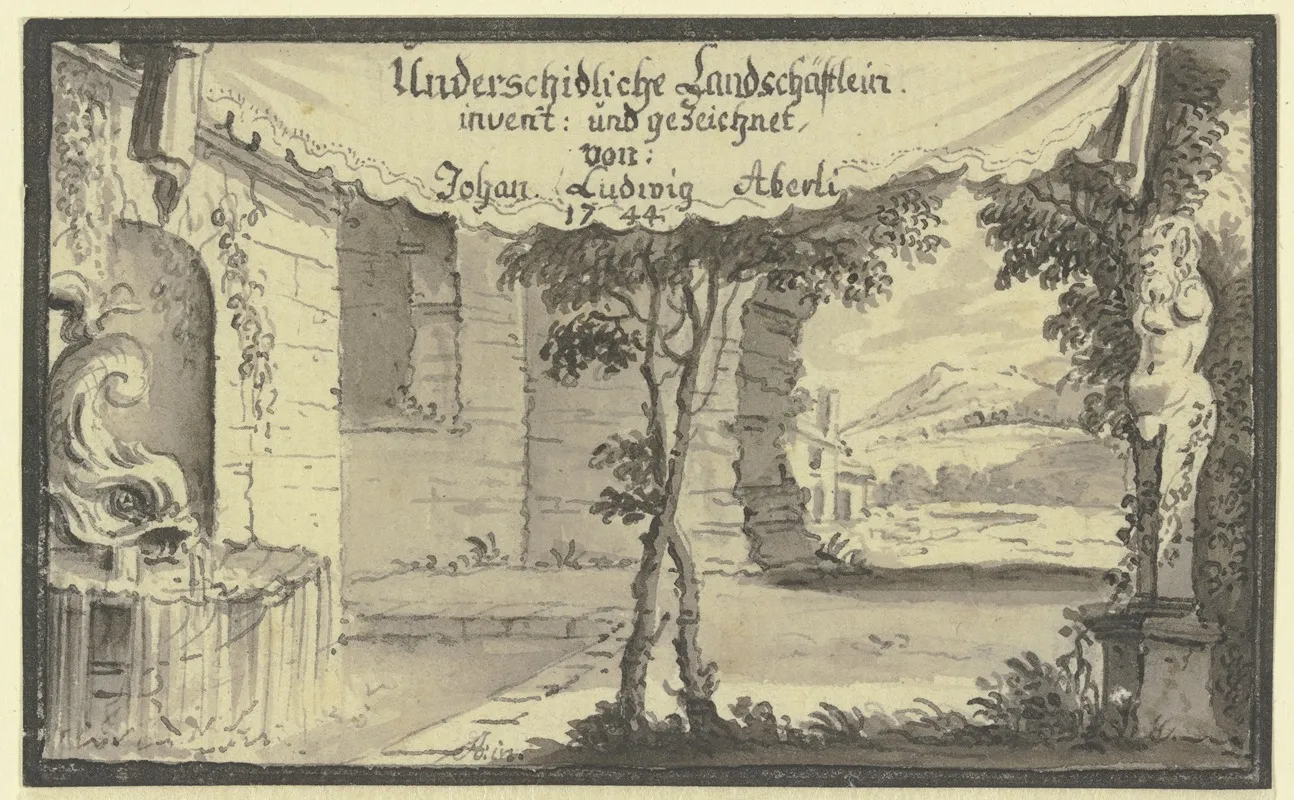 Underschidliche Landschäftlein.
invent: und gezeichnet,
von:
Johan. Ludwig Aberli
1744.
A: in.